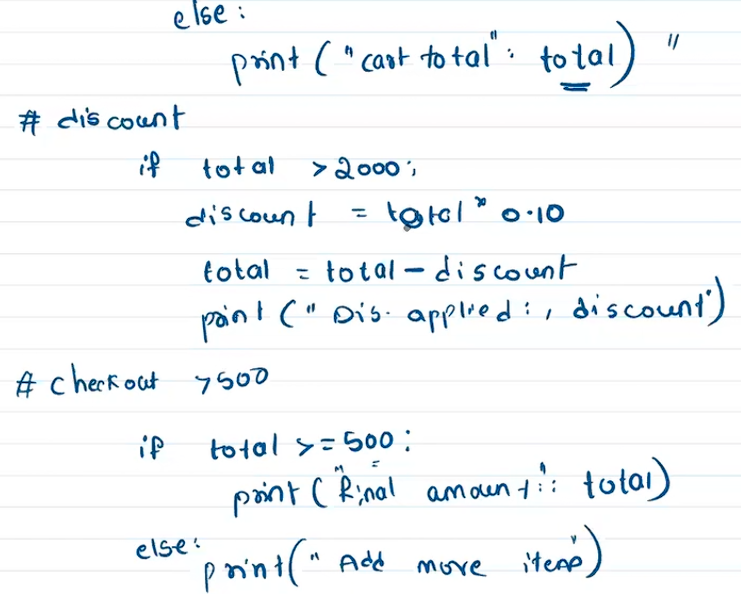 else:
print ("cart total": total) "
# discount
if total >2000:
discount = total * 0.10
total = total - discount
print (" Dis. applied:, discount")
# checkout >500
if total >= 500:
print ("Final amount": total)
else:
print(" Add more items")